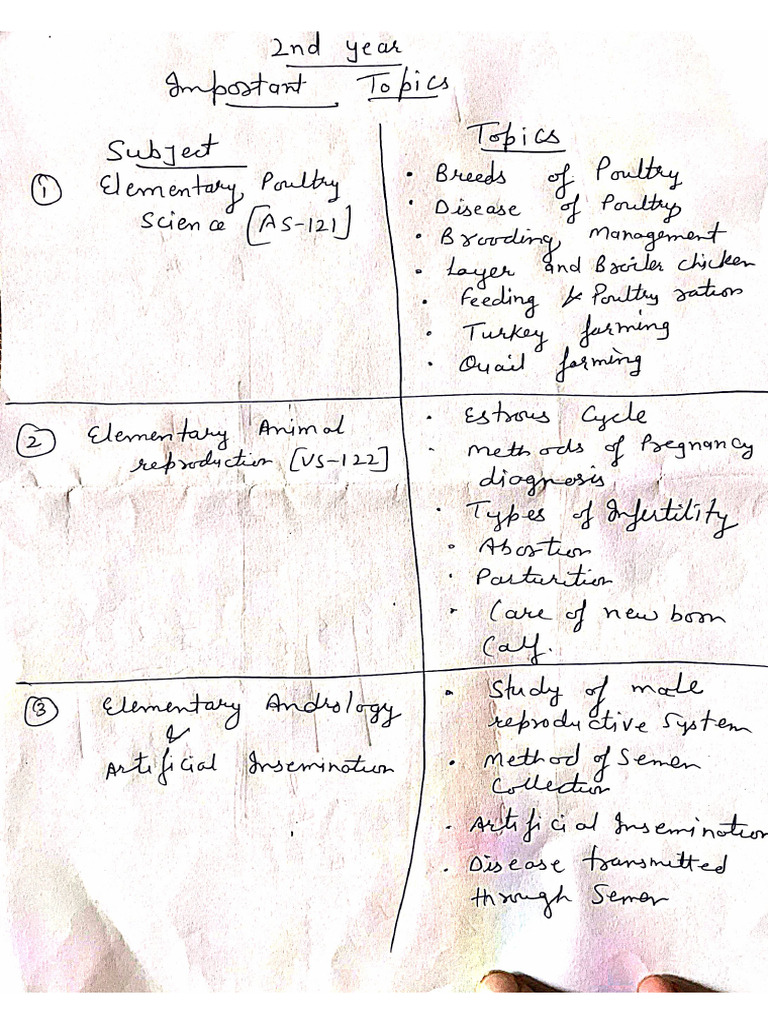 2nd year
Important Topics
Subject
① Elementary Poultry
Science [AS-121]
Topics
• Breeds of Poultry
• Disease of Poultry
• Brooding Management
• Layer and Broiler chicken
• Feeding & Poultry ration
• Turkey farming
• Quail farming
② Elementary Animal
reproduction [VS-122]
• Estrous Cycle
• Methods of Pregnancy
diagnosis
• Types of Infertility
• Abortion
• Parturition
• Care of new born
Calf.
③ Elementary Andrology
&
Artificial Insemination
• Study of male
reproductive System
• Method of Semen
Collection
• Artificial Insemination
• Disease transmitted
through Semen